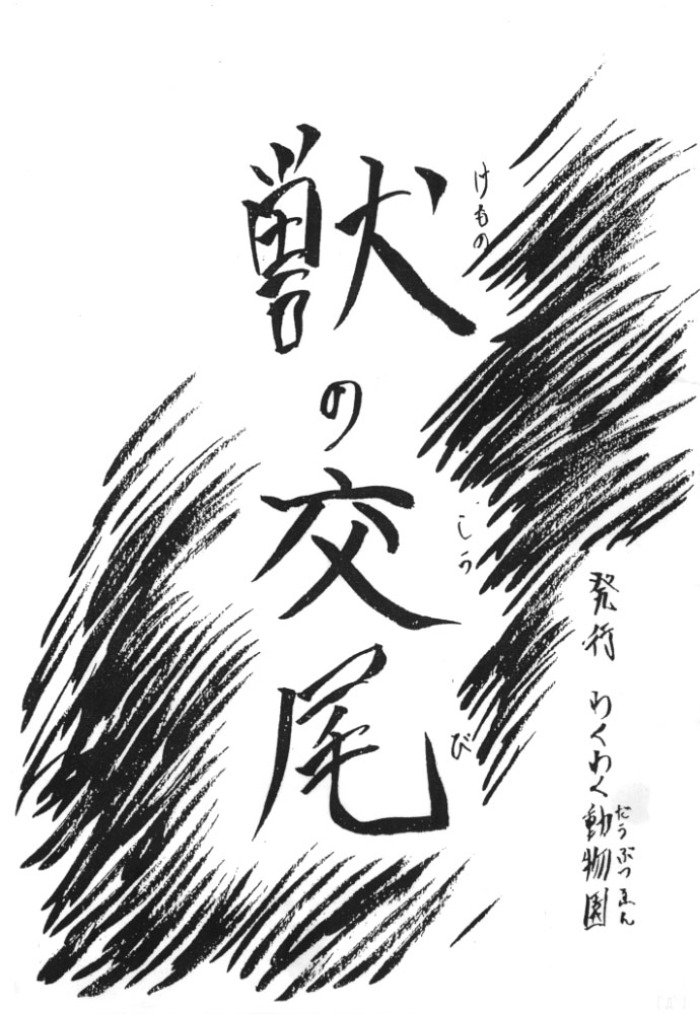 獣の交尾
けもの
こう
び
発行 わくわく動物園
どうぶつえん